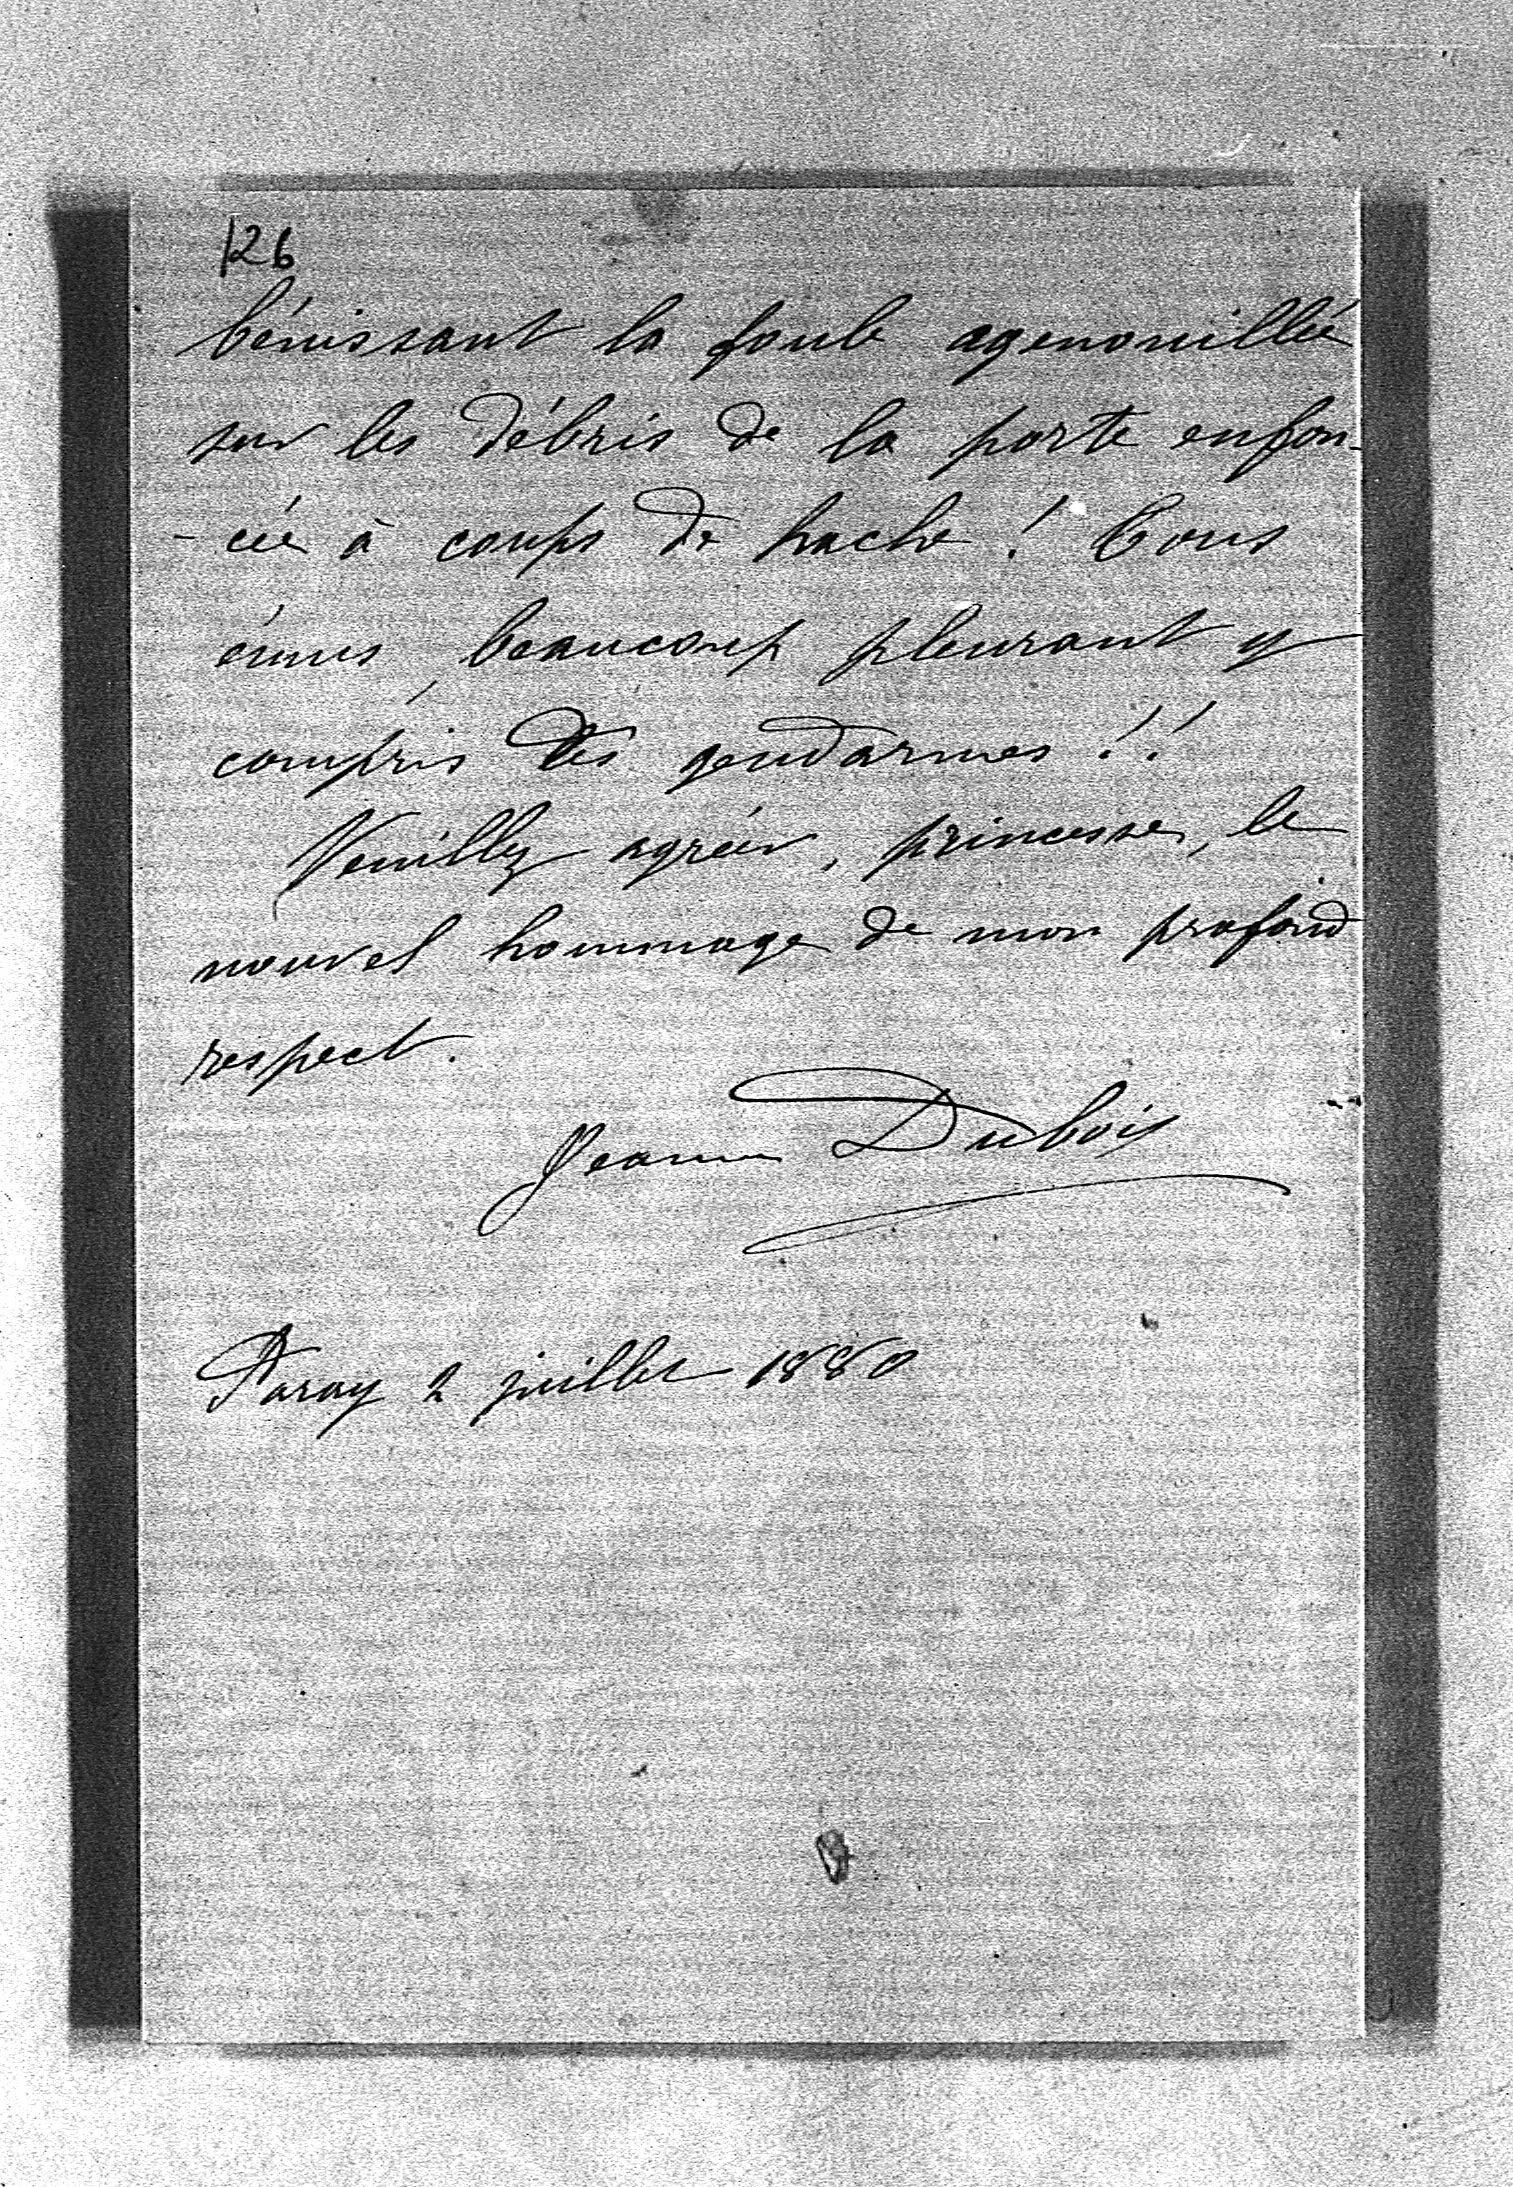 126
bénissant la foule agenouillée
sur les débris de la porte enfon-
-cée à coups de hache ! Tous
émus, beaucoup pleurant y
compris des gendarmes !!
Veuillez agréer, princesse, le
nouvel hommage de mon profond
respect.
Jeanne Dubois
Paray 2 juillet 1880